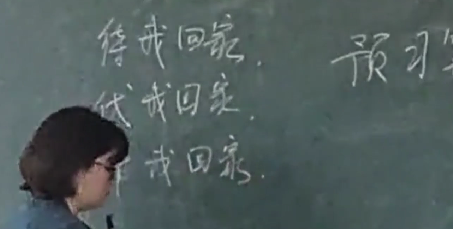 待我回家.
代我回家.
我回家.
预习